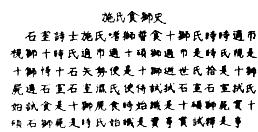 施氏食獅史
石室詩士施氏嗜獅誓食十獅氏時時適市
視獅十時氏適市適十碩獅適市是時氏視是
十獅恃十石矢勢使是十獅逝世氏拾是十獅
屍適石室石室濕氏使侍拭石室石室拭氏
始試食是十獅屍食時始識是十碩獅屍實十
碩石獅屍是時氏始識是實事實試釋是事